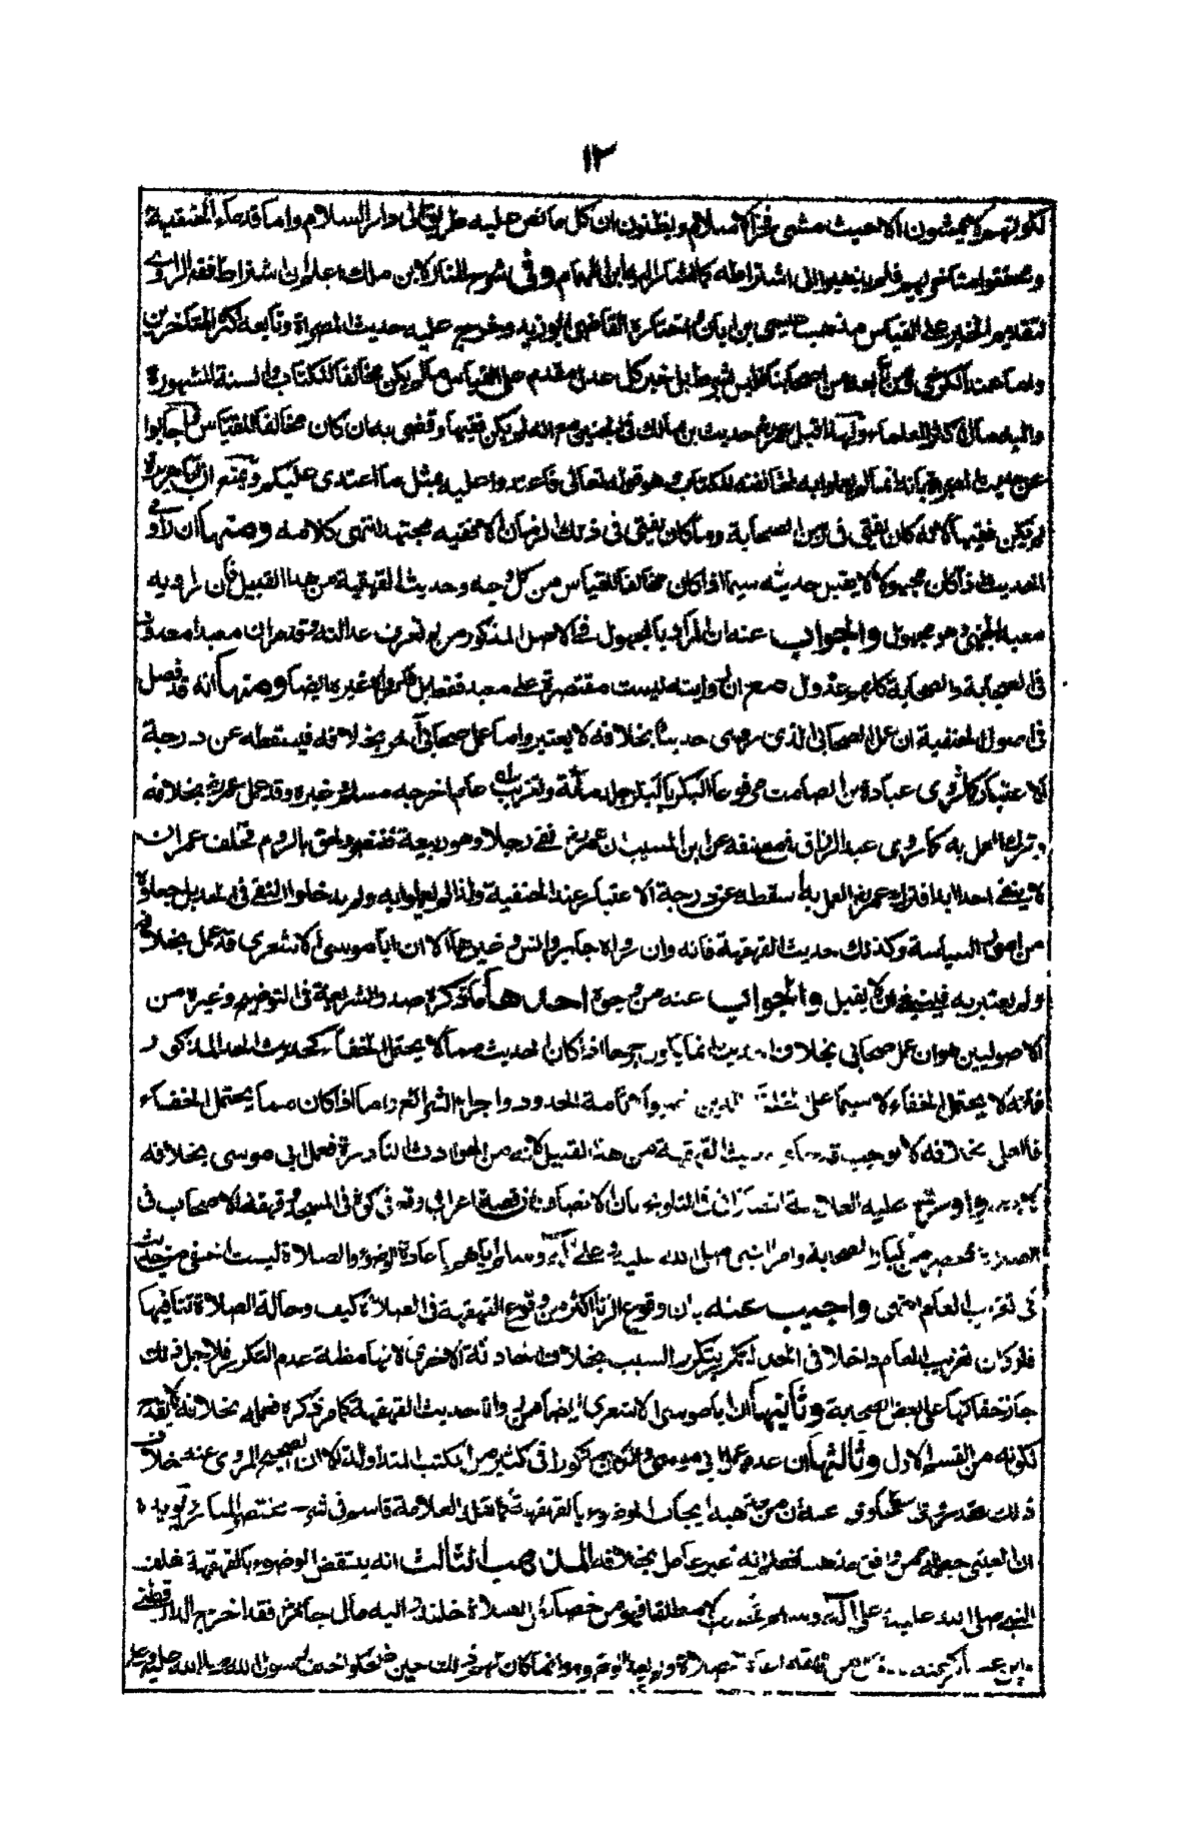 ١٢
لكونهم لا يمشون الا حيث مشى فخر الاسلام ويظنون ان كل ما نص عليه طريق الى دار السلام واما قدماء الحنفية
ومحققوا متأخريهم فلم يذهبوا الى اشتراطه كما اشار اليه ابن الهمام وفي شرح المنار لابن ملك اعلم ان اشتراط فقه الراوي
لتقديم الخبر على القياس مذهب عيسى بن ابان واختاره القاضي ابو زيد وخرج عليه حديث المصراة وتابعه اكثر المتاخرين
واما عند الكرخي ومن تابعه من اصحابنا فليس بشرط بل خبر كل عدل مقدم على القياس ما لم يكن مخالفا للكتاب والسنة المشهورة
واليه مال اكثر العلماء ولهذا قبل عمر حديث بن مالك في الجنين مع انه لم يكن فقيها وقضى به وان كان مخالفا للقياس واجابوا
عن حديث المصراة بانه انما لم يعملوا به لمخالفته للكتاب وهو قوله تعالى فاعتدوا عليه بمثل ما اعتدى عليكم ويمنع ان ابا هريرة
لم يكن فقيها لانه كان يفتي في زمن الصحابة وما كان يفتي في ذلك الزمان الا فقيه مجتهد انتهى كلامه ومنها ان راوي
الحديث اذا كان مجهولا لا يقبل حديثه سيما اذا كان مخالفا للقياس من كل وجه وحديث القهقهة من هذا القبيل فان راويه
معبد الجهني وهو مجهول والجواب عنه ان المراد بالمجهول في الاصل المذكور من لم تعرف عدالته وقد مر ان معبدا معدود
في الصحابة والصحابة كلهم عدول مع ان روايته ليست مقتصرة على معبد فقط بل قد رواه غيره ايضا ومنها انه قد فصل
في اصول الحنفية ان عمل الصحابي الذي روى حديثا بخلافه لا يعتبر واما عمل صحابي آخر بخلافه فيسقطه عن درجة
الاعتبار كما روى عبادة بن الصامت مرفوعا البكر بالبكر جلد مائة وتغريب عام اخرجه مسلم وغيره وقد عمل عمر بخلافه
وترك العمل به كما روى عبد الرزاق في مصنفه عن ابن المسيب ان عمر نفى رجلا وهو ربيعة فتنصر ولحق بالروم فحلف عمر ان
لا ينفي احدا ابدا فترك عمر العمل به اسقطه عن درجة الاعتبار عند الحنفية ولذا لم يعملوا به ولم يدخلوا النفي في الحد بل جعلوه
من امور السياسة وكذلك حديث القهقهة فانه وان رواه جابر وانس وغيرهما الا ان ابا موسى الاشعري قد عمل بخلافه
ولم يعتبر به فينبغي ان لا يقبل والجواب عنه من وجوه احدها ما ذكره صدر الشريعة في التوضيح وغيره من
الاصوليين هو ان عمل صحابي بخلاف الحديث انما يورث جرحا اذا كان الحديث مما لا يحتمل الخفاء كحديث الحد المذكور
فانه لا يحتمل الخفاء لا سيما على الخلفاء الذين نصبوا لاقامة الحدود واجراء الشرائع واما اذا كان مما يحتمل الخفاء
فالعمل بخلافه لا يوجب قدحا وحديث القهقهة من هذا القبيل لانه من الحوادث النادرة فعمل ابي موسى بخلافه
واورد عليه العلامة التفتازاني في التلويح بان الانصاف ان قصة اعرابي وقع في كوة في المسجد وقهقهة الاصحاب في
الصلاة بمحضر من كبار الصحابة وامر النبي صلى الله عليه وعلى آله وسلم اياهم باعادة الوضوء والصلاة ليست اخفى من حديث
في تغريب العام انتهى واجيب عنه بان وقوع الزنا اكثر من وقوع القهقهة في الصلاة كيف وحالة الصلاة تنافيها
فلو كان تغريب العام داخلا في الحد لتكرر بتكرر السبب بخلاف الحادثة الاخرى لانها مظنة عدم التكرر فلاجل ذلك
جاز خفاؤها على بعض الصحابة وثانيها ان ابا موسى الاشعري ايضا ممن روى حديث القهقهة كما مر ذكره فعمله بخلافه لا يقدح
لكونه من القسم الاول وثالثها ان عدم عمل ابي موسى وان كان مذكورا في كثير من الكتب المتداولة الا ان الصحيح المروي عنه خلاف
ذلك فقد روى الطحاوي عنه ان من مذهبه ايجاب الوضوء بالقهقهة كما نقله العلامة قاسم في شرح مختصر المنار ويؤيده
ان العيني جعله ممن وافق مذهبنا فعلم انه غير عامل بخلافه المذهب الثالث انه ينتقض الوضوء بالقهقهة خلف
النبي صلى الله عليه وعلى آله وسلم لا مطلقا فهو من خصائص الصلاة خلفه واليه مال جابر فقد اخرج الدارقطني
من ضحك اعادة الصلاة ولم يعد الوضوء وانما كان لهم ذلك حين ضحكوا خلف رسول الله صلى الله عليه وسلم